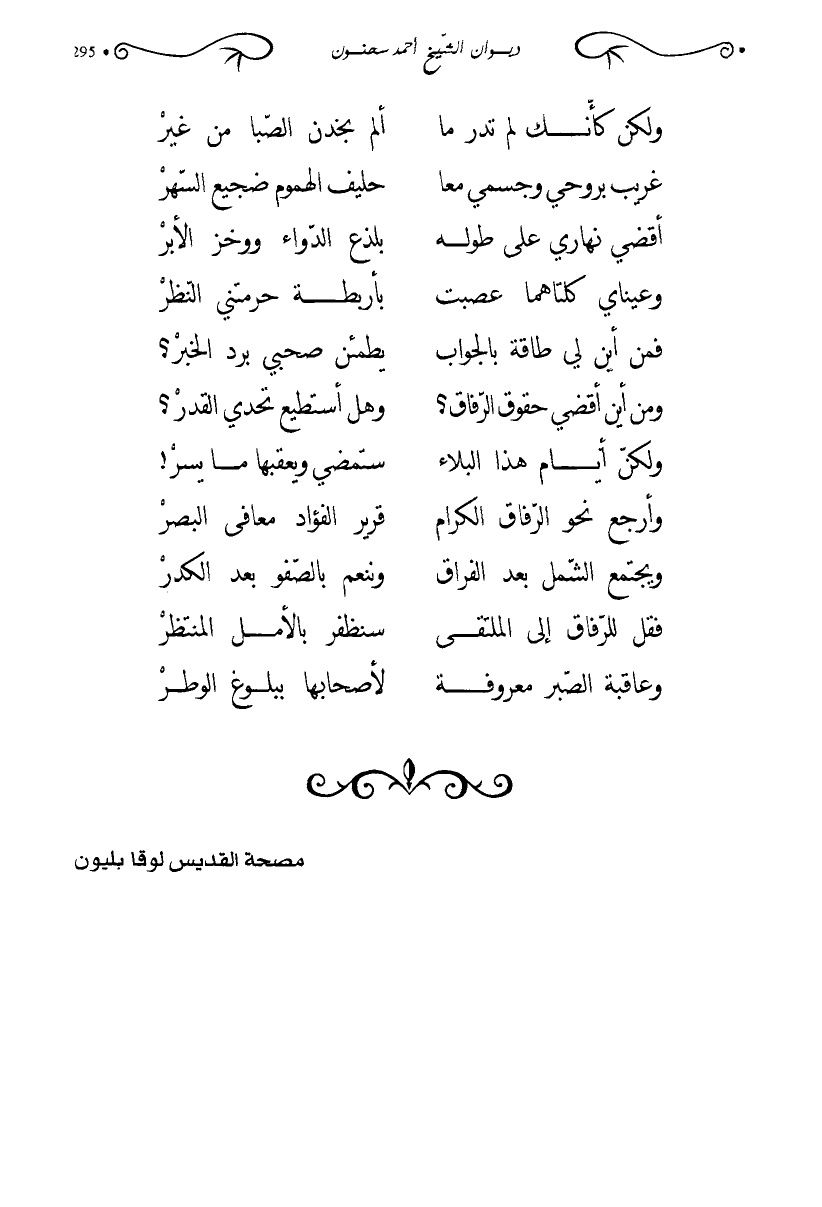 ديـوان الشّيخ أحمد سحنـون 295
ولكن كأنّـــك لم تدر ما ألم بخدن الصّبا من غيرْ
غريب بروحي وجسمي معا حليف الهموم ضجيع السّهرْ
أقضي نهاري على طولـه بلذع الدّواء ووخز الأبرْ
وعيناي كلتاهما عصبت بأربطـــة حرمتني النّظرْ
فمن أين لي طاقة بالجواب يطمئن صحبي برد الخبرْ؟
ومن أين أقضي حقوق الرّفاق؟ وهل أستطيع تحدي القدرْ؟
ولكنّ أيـــام هذا البلاء ستمضي ويعقبها مـا يسرْ!
وأرجع نحو الرّفاق الكرام قرير الفؤاد معافى البصرْ
ويجتمع الشّمل بعد الفراق وننعم بالصّفو بعد الكدرْ
فقل للرّفاق إلى الملتقـى سنظفر بالأمـل المنتظرْ
وعاقبة الصّبر معروفـــة لأصحابها ببلـوغ الوطـرْ
مصحة القديس لوقا بليون